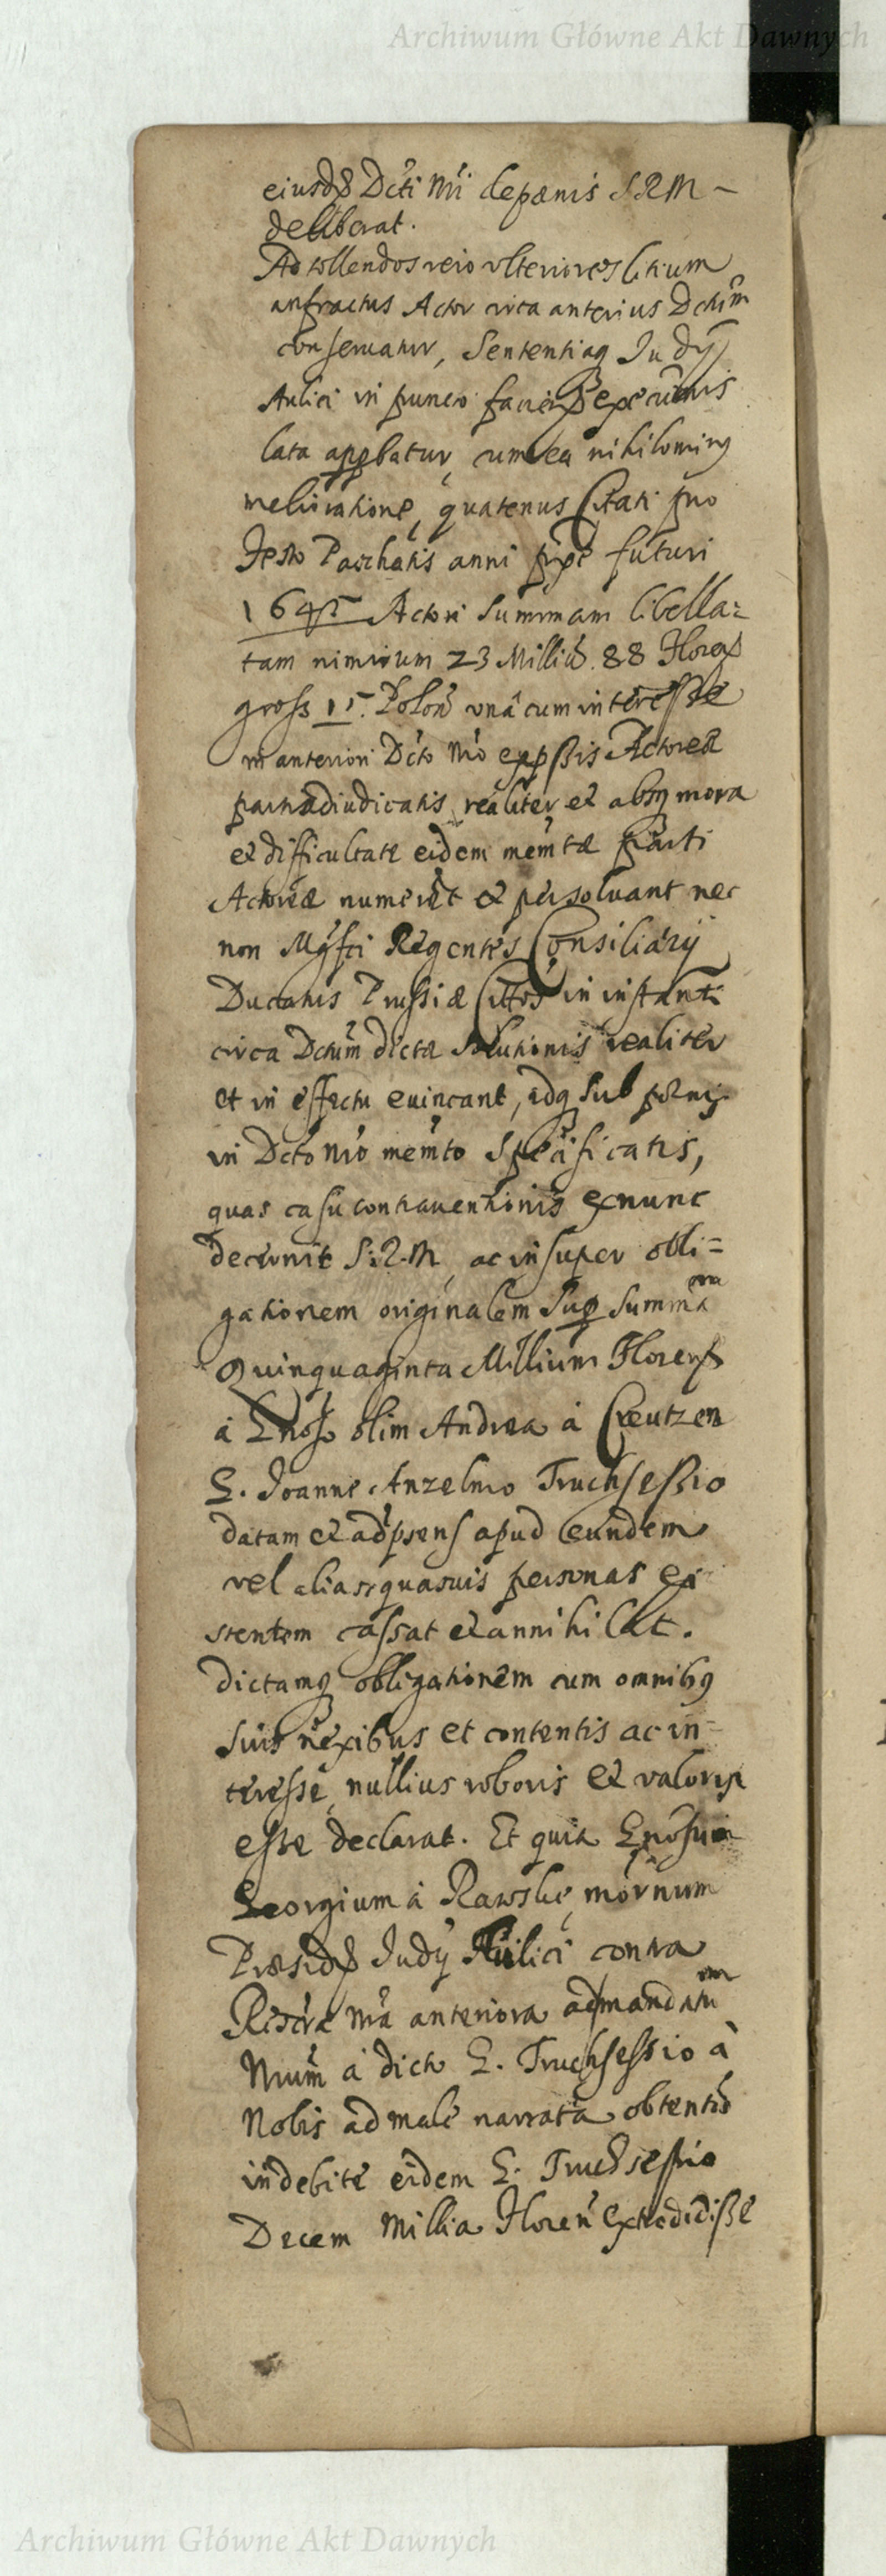 Archiwum Główne Akt Dawnych
eiusdē Dcti Nri de paenis SRM
deliberat.
Ad tollendos vero ulteriores litium
anfractus Actor circa anterius Dctum
conseruatur, Sententiaq Judÿ
Aulici in puncto faciē executnis
lata approbatur, cum ea nihilominq
melioratione, quatenus Citati pro
Festo Paschatis anni prxe futuri
1645 Actori summam libella=
tam nimirum 23 Milliū 88 Floren
gross 15 Polon una cum interesse
in anteriori Dcto Nro expssis Actoreae
parti adiudicatis, realiter et absq mora
et difficultate eidem memtae parti
Actoreae numerēt et persoluant nec
non Mgfci Regentes Consiliarÿ
Ducatus Prussiae Cittos in instanti
circa Dctum dictae solutionis realiter
et in effectu euincant, idq sub poenis
in Dcto Nro memto specificatis,
quas casu contrauentionis exnunc
decernit S.R.M, ac insuper obli=
gationem originalem sup summam
Quinquaginta Millium Floren
à Gnoso olim Andrea à Creutzen
G. Joanne Anzelmo Truchsessio
datam et ad psens apud eundem
vel alias quasuis personas ex
stentem cassat et annihilat.
dictamq obligationem cum omnibq
suis nexibus et contentis ac in=
teresse, nullius roboris et valoris
esse declarat. Et quia Gnosum
Georgium à Rawske, mornum
Praesidē Judÿ Aulici contra
Rescra Nra anteriora ad mandatum
Nrum à dicto G. Truchsessio à
Nobis ad male narrata obtentū
indebite eidem G. Truchsessio
Decem Millia Floren extradidisse
Archiwum Główne Akt Dawnych